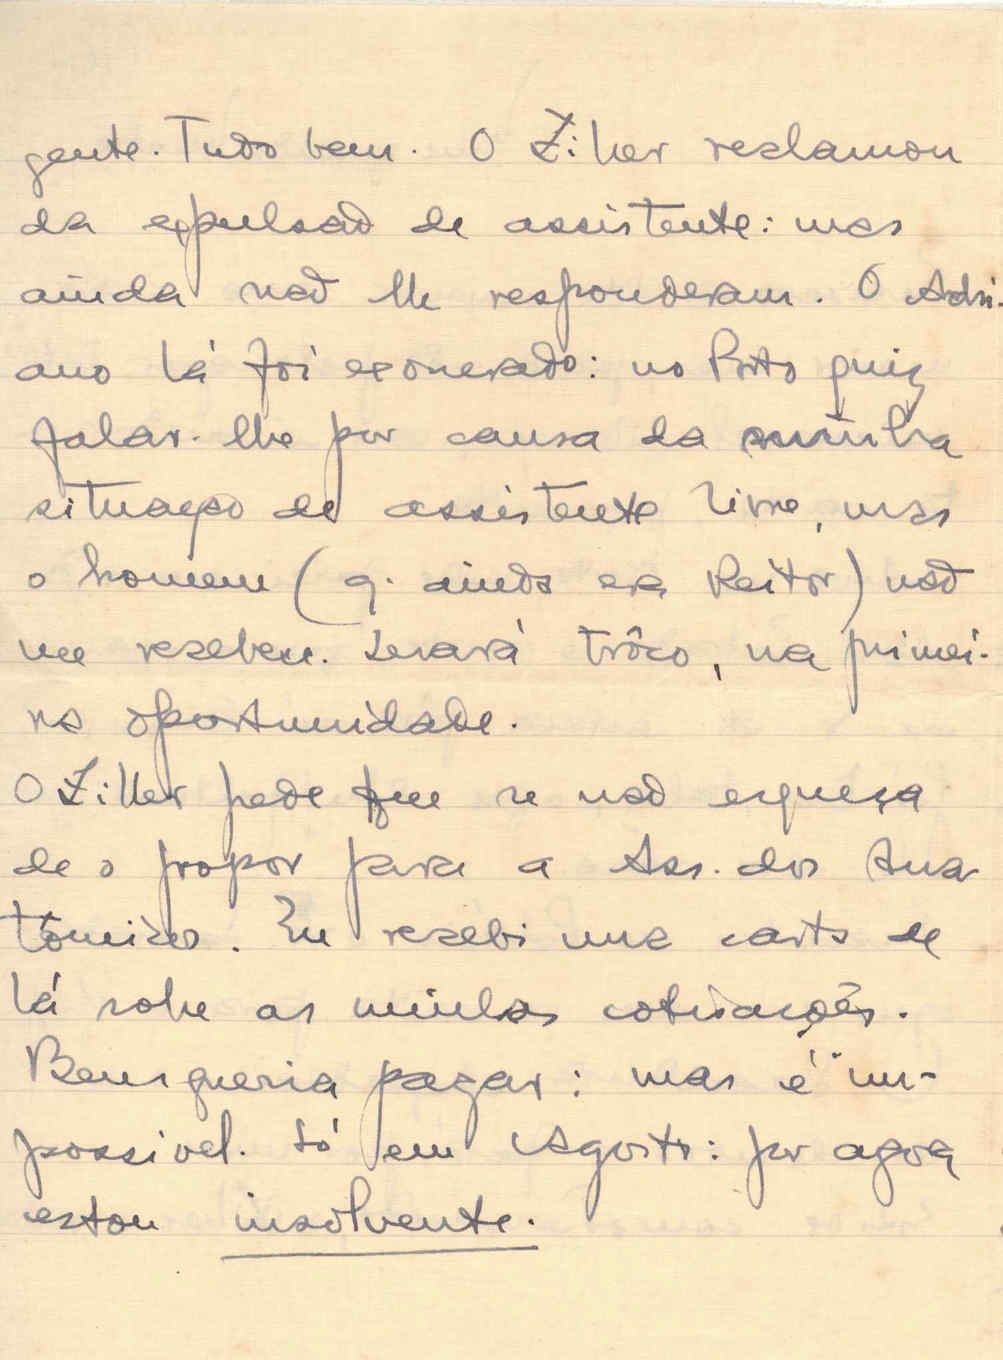 gente. Tudo bem. O Ziller reclamou
da expulsão de assistente: mas
ainda não lhe responderam. O Adri-
ano lá foi exonerado: no Porto quiz
falar-lhe por causa da minha
situação de assistente livre, mas
o homem (q. ainda era Reitor) não
me recebeu. Levará trôco, na primei-
ra oportunidade.
O Ziller pede que se não esqueça
de o propor para a Ass. dos Ana-
tómicos. Eu recebi uma carta de
lá sobre as minhas cotisações.
Bem queria pagar: mas é im-
possivel. Só em Agosto: por agora
estou insolvente.